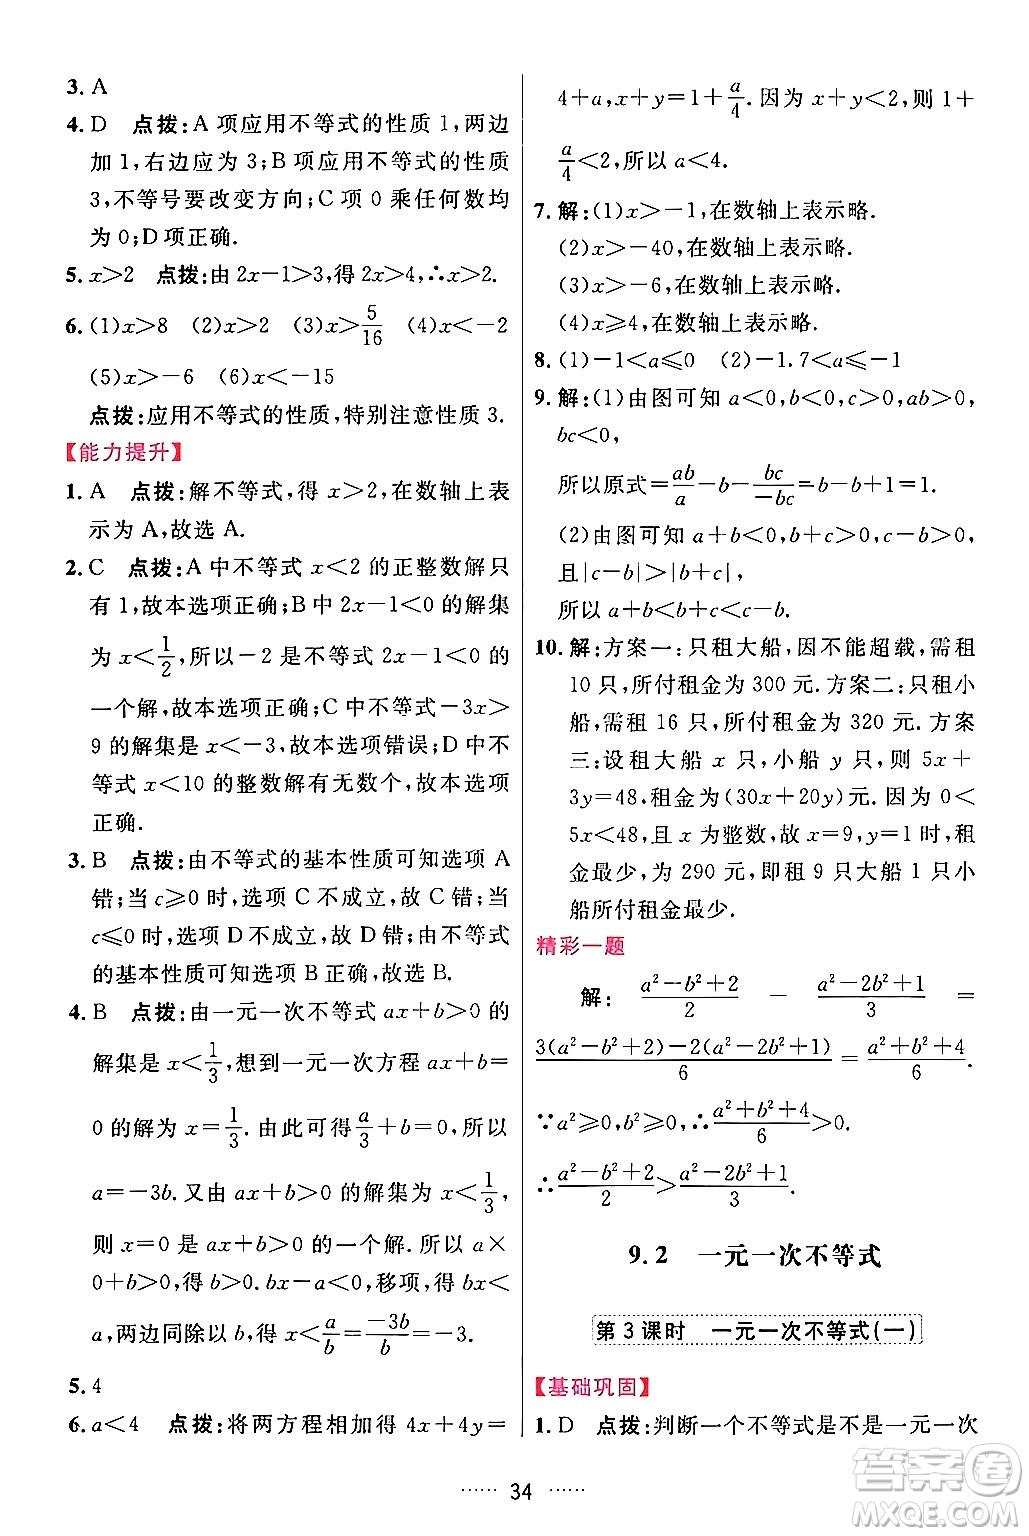 3. A
4. D 点拨:A 项应用不等式的性质 1,两边
加 1,右边应为 3;B 项应用不等式的性质
3,不等号要改变方向;C 项 0 乘任何数均
为 0;D 项正确.
5. x>2 点拨:由 2x-1>3,得 2x>4,∴x>2.
6. (1)x>8 (2)x>2 (3)x>5/16 (4)x<-2
(5)x>-6 (6)x<-15
点拨:应用不等式的性质,特别注意性质 3.
【能力提升】
1. A 点拨:解不等式,得 x>2,在数轴上表
示为 A,故选 A.
2. C 点拨:A 中不等式 x<2 的正整数解只
有 1,故本选项正确;B 中 2x-1<0 的解集
为 x<1/2,所以-2 是不等式 2x-1<0 的
一个解,故本选项正确;C 中不等式-3x>
9 的解集是 x<-3,故本选项错误;D 中不
等式 x<10 的整数解有无数个,故本选项
正确.
3. B 点拨:由不等式的基本性质可知选项 A
错;当 c≥0 时,选项 C 不成立,故 C 错;当
c≤0 时,选项 D 不成立,故 D 错;由不等式
的基本性质可知选项 B 正确,故选 B.
4. B 点拨:由一元一次不等式 ax+b>0 的
解集是 x<1/3,想到一元一次方程 ax+b=
0 的解为 x=1/3.由此可得 a/3+b=0,所以
a=-3b.又由 ax+b>0 的解集为 x<1/3,
则 x=0 是 ax+b>0 的一个解.所以 a×
0+b>0,即 b>0.bx-a<0,移项,得 bx<
a,两边同除以 b,得 x<a/b=-3b/b=-3.
5. 4
6. a<4 点拨:将两方程相加得 4x+4y=
4+a,x+y=1+a/4.因为 x+y<2,则 1+
a/4<2,所以 a<4.
7. 解:(1)x>-1,在数轴上表示略.
(2)x>-40,在数轴上表示略.
(3)x>-6,在数轴上表示略.
(4)x≥4,在数轴上表示略.
8. (1)-1<a≤0 (2)-1.7<a≤-1
9. 解:(1)由图可知 a<0,b<0,c>0,ab>0,
bc<0,
所以原式=ab/a-b-bc/-bc=b-b+1=1.
(2)由图可知 a+b<0,b+c<0,c-b>0,
且|c-b|>|b+c|,
所以 a+b<b+c<c-b.
10. 解:方案一:只租大船,因不能超载,需租
10 只,所付租金为 300 元.方案二:只租小
船,需租 16 只,所付租金为 320 元.方案
三:设租大船 x 只,小船 y 只,则 5x+
3y=48,租金为(30x+20y)元.因为 0<
5x<48,且 x 为整数,故 x=9,y=1 时,租
金最少,为 290 元,即租 9 只大船 1 只小
船所付租金最少.
精彩一题
解: (a²-b²+2)/2 - (a²-2b²+1)/3 =
(3(a²-b²+2)-2(a²-2b²+1))/6=(a²+b²+4)/6.
∵a²≥0,b²≥0,∴(a²+b²+4)/6>0.
∴(a²-b²+2)/2>(a²-2b²+1)/3.
9.2 一元一次不等式
第 3 课时 一元一次不等式(一)
【基础巩固】
1. D 点拨:判断一个不等式是不是一元一次
34
答案卷
MXQE.COM